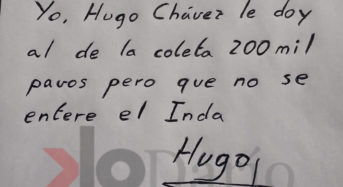 Yo, Hugo Chávez le doy
al de la coleta 200 mil
pavos pero que no se
entere el Inda
Hugo